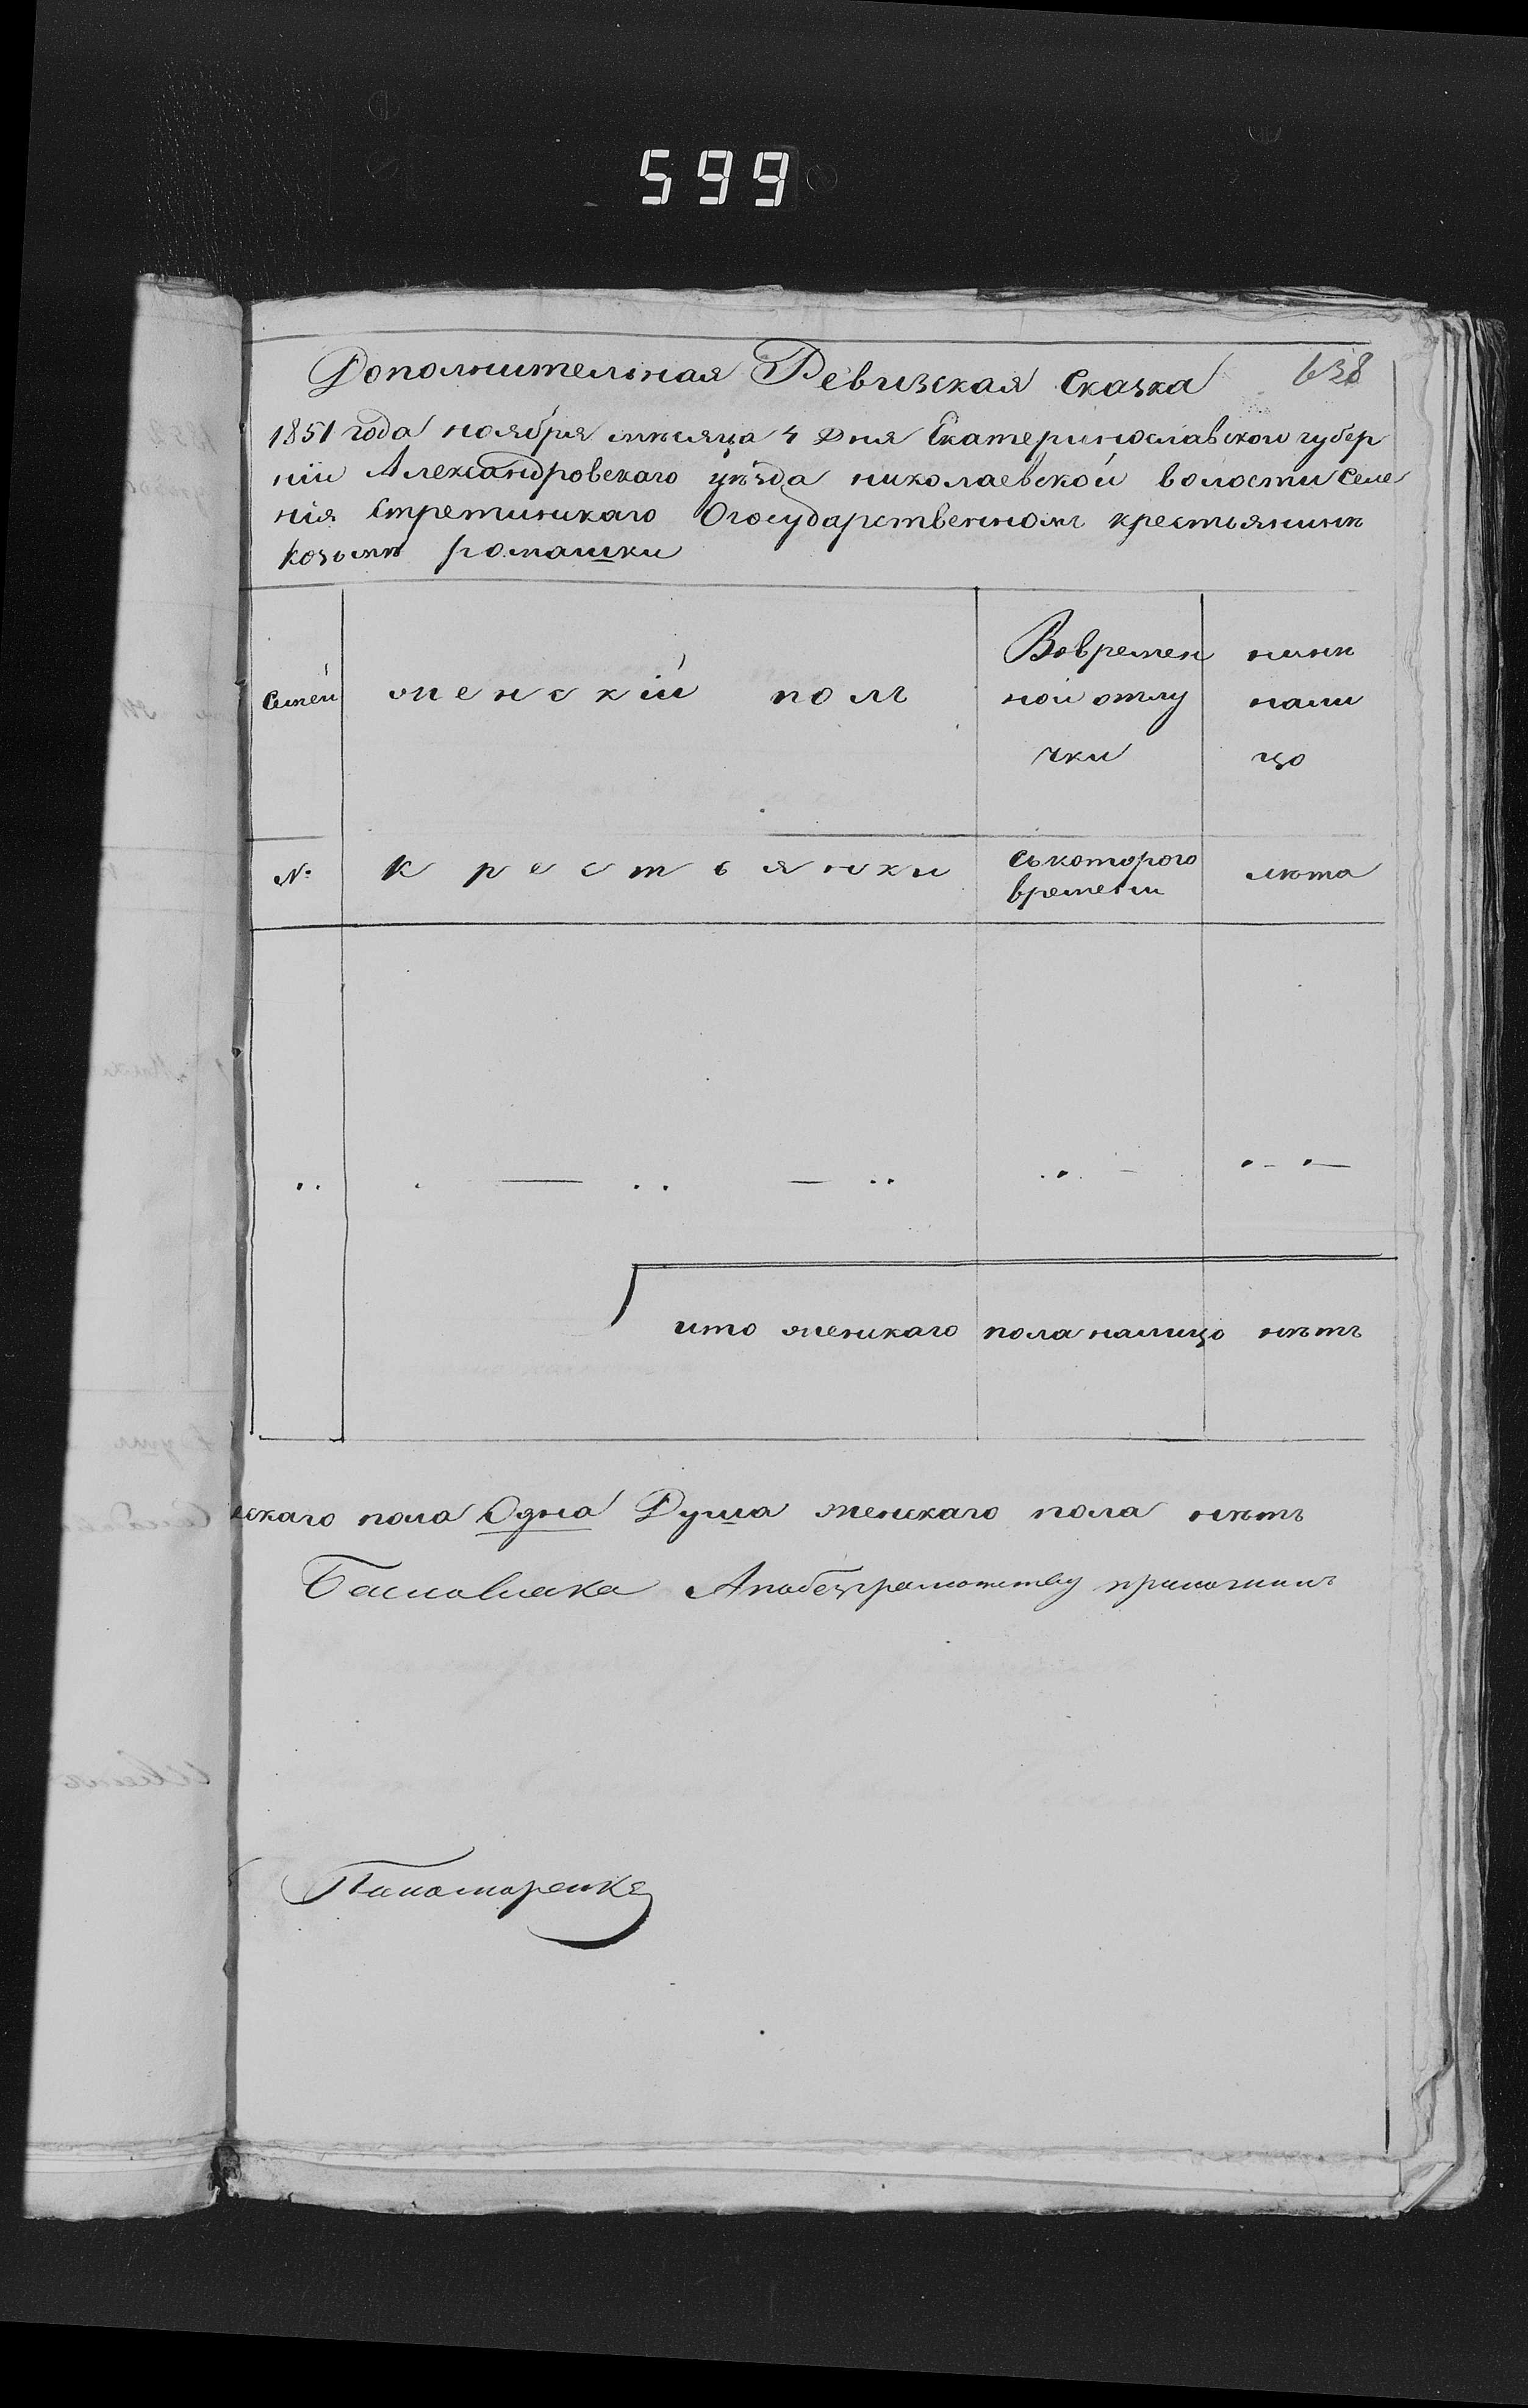 599
638
Дополнительная Ревизская Сказка
1851 года ноября месяца 4 Дня Екатеринославской губер
ніи Александровского уѣзда николаевской волости Селе
нія Стретинскаго Огосударственномъ крестьянинѣ
козьмѣ ромашки
Семей женскій полъ Вовремен нынѣ
ной отлу нали
чки цо
№ крестьянки съкоторого лѣта
времени
ито женскаго пола налицо нѣтъ
скаго пола Одна Душа женскаго пола нѣтъ
Апобезграмотству приложилъ
Пономаренко